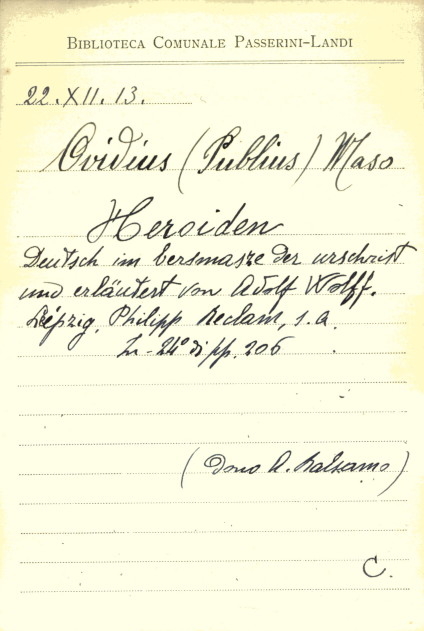 BIBLIOTECA COMUNALE PASSERINI-LANDI
22.XII.13.
Ovidius (Publius) Naso
Heroiden
Deutsch im versmasze der urschrist
und erläutert von Adolf Wolff.
Leipzig, Philipp Reclam, s.a.
In-24° di pp. 206
(Dono A. Balsamo)
C.